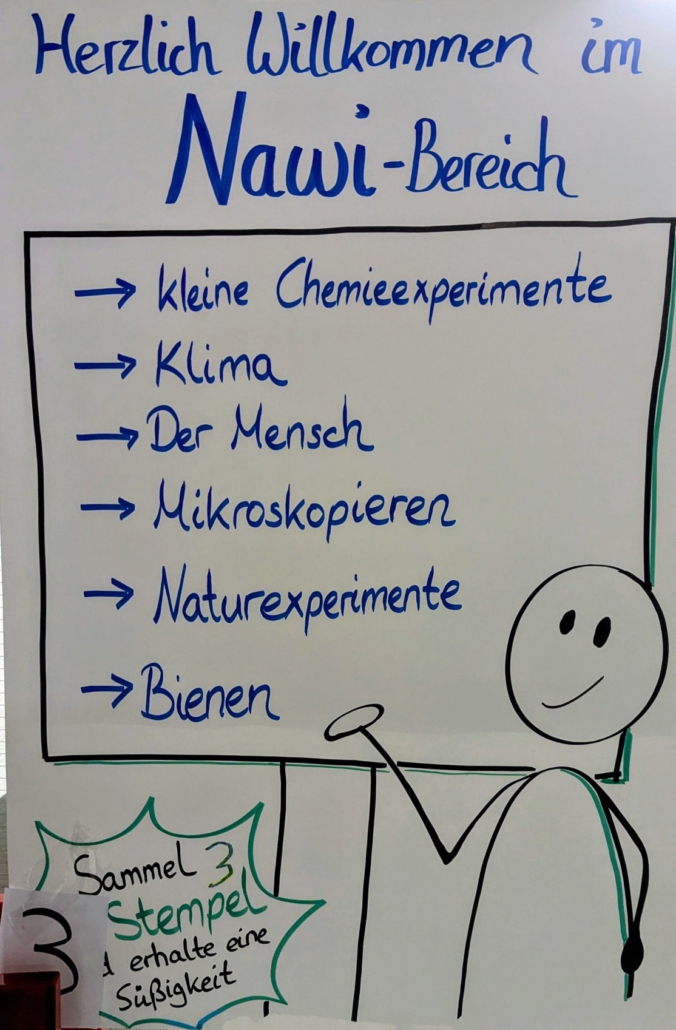 Herzlich Willkommen im
Nawi-Bereich
→ kleine Chemieexperimente
→ Klima
→ Der Mensch
→ Mikroskopieren
→ Naturexperimente
→ Bienen
Sammel 3
Stempel
erhalte eine
Süßigkeit
3